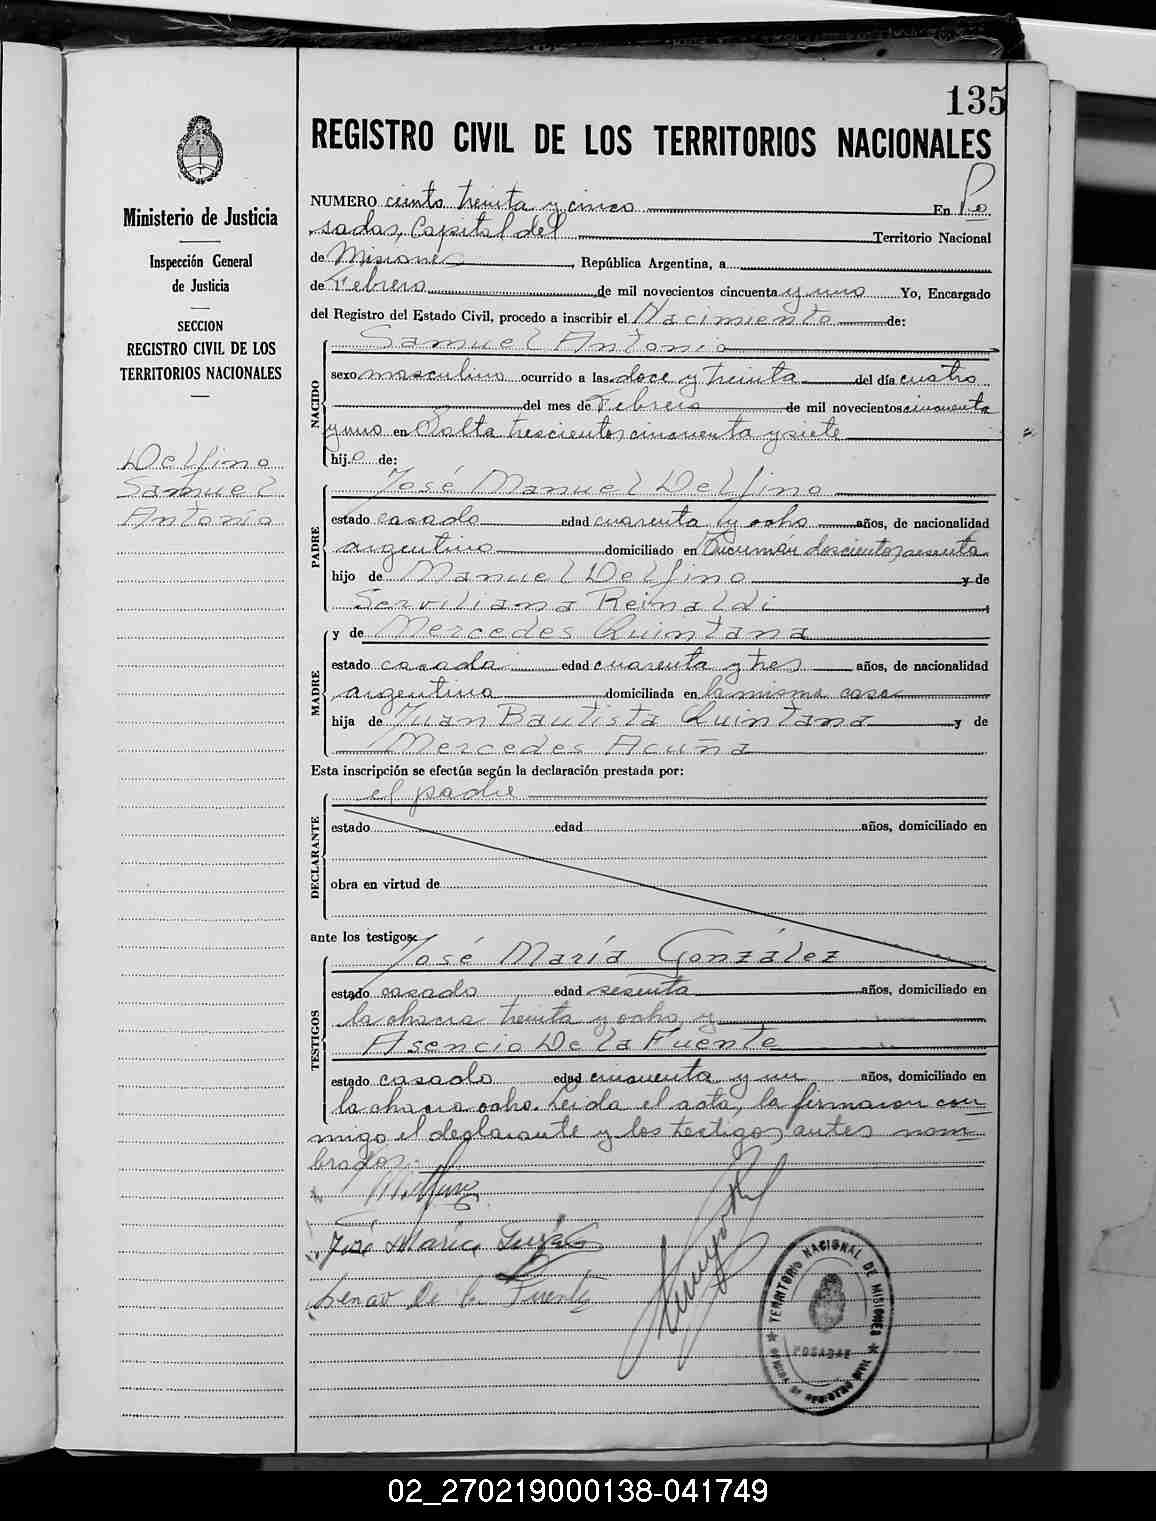 135
REGISTRO CIVIL DE LOS TERRITORIOS NACIONALES
Ministerio de Justicia
Inspección General
de Justicia
SECCION
REGISTRO CIVIL DE LOS
TERRITORIOS NACIONALES
Delfino
Samuel
Antonio
NUMERO ciento treinta y cinco En Po
sadas, Capital del Territorio Nacional
de Misiones, República Argentina, a
de Febrero de mil novecientos cincuenta y uno Yo, Encargado
del Registro del Estado Civil, procedo a inscribir el Nacimiento de:
NACIDO
Samuel Antonio
sexo masculino ocurrido a las doce y treinta del día cuatro
del mes de Febrero de mil novecientos cincuenta
y uno en Salta trescientos cincuenta y siete
hijo de:
PADRE
José Manuel Delfino
estado casado edad cuarenta y ocho años, de nacionalidad
argentino domiciliado en Tucumán doscientos sesenta
hijo de Manuel Delfino y de
Serviliana Reinaldi
MADRE
y de Mercedes Quintana
estado casada edad cuarenta y tres años, de nacionalidad
argentina domiciliada en la misma casa
hija de Juan Bautista Quintana y de
Mercedes Acuña
Esta inscripción se efectúa según la declaración prestada por:
DECLARANTE
el padre
estado edad años, domiciliado en
obra en virtud de
ante los testigos:
TESTIGOS
José María González
estado casado edad sesenta años, domiciliado en
la chacra treinta y ocho y
Asencio De la Fuente
estado casado edad cincuenta y un años, domiciliado en
la chacra ocho. Leida el acta, la firmaron con
migo el declarante y los testigos antes nom
brados.
José María
de la Fuente
TERRITORIO NACIONAL DE MISIONES
POSADAS
OFICINA DE REGISTRO CIVIL
02_270219000138-041749